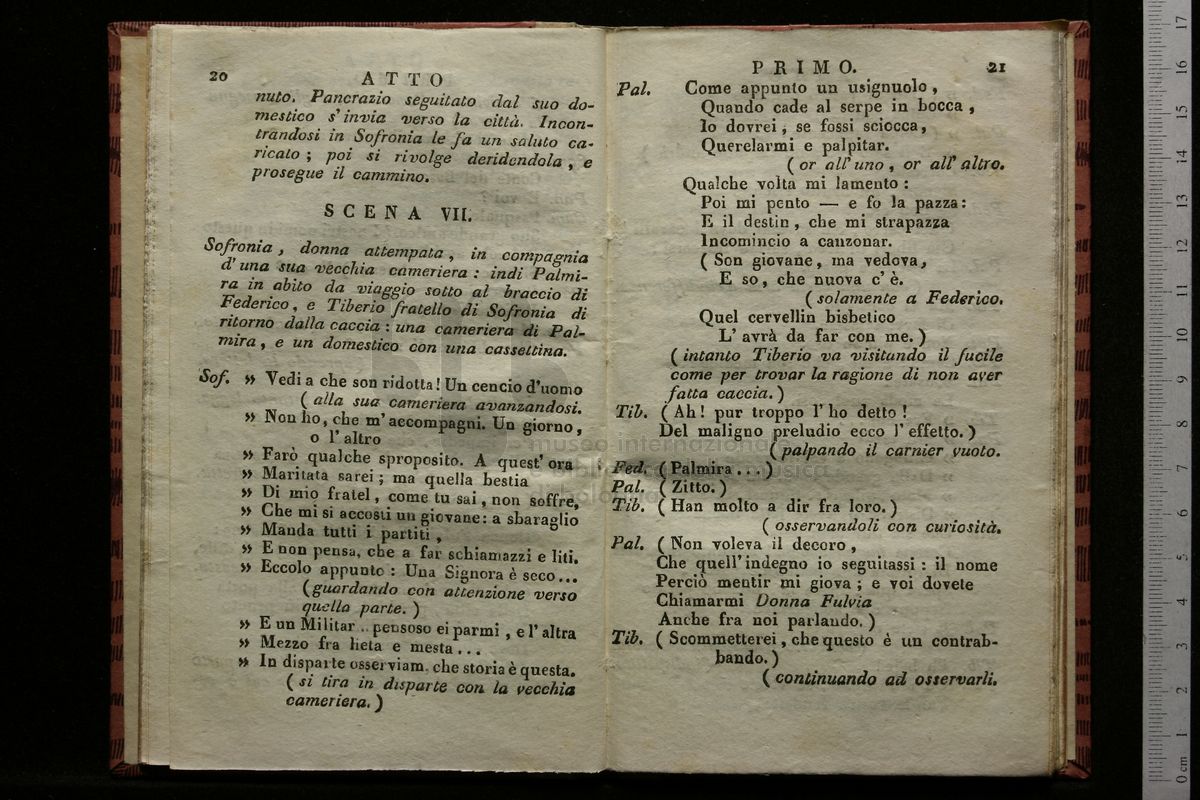 20
ATTO
nuto. Pancrazio seguitato dal suo do-
mestico s'invia verso la città. Incon-
trandosi in Sofronia le fa un saluto ca-
ricato ; poi si rivolge deridendola , e
prosegue il cammino.
SCENA VII.
Sofronia , donna attempata , in compagnia
d'una sua vecchia cameriera : indi Palmi-
ra in abito da viaggio sotto al braccio di
Federico , e Tiberio fratello di Sofronia di
ritorno dalla caccia : una cameriera di Pal-
mira , e un domestico con una cassettina.
Sof. » Vedi a che son ridotta! Un cencio d'uomo
( alla sua cameriera avanzandosi.
» Non ho, che m'accompagni. Un giorno ,
o l'altro
» Farò qualche sproposito. A quest' ora
» Maritata sarei ; ma quella bestia
» Di mio fratel , come tu sai , non soffre,
» Che mi si accosti un giovane: a sbaraglio
» Manda tutti i partiti ,
» E non pensa, che a far schiamazzi e liti.
» Eccolo appunto : Una Signora è seco...
(guardando con attenzione verso
quella parte. )
» E un Militar .. pensoso ei parmi , e l'altra
» Mezzo fra lieta e mesta...
» In disparte osserviam, che storia è questa.
( si tira in disparte con la vecchia
cameriera. )
PRIMO.
21
Pal. Come appunto un usignuolo ,
Quando cade al serpe in bocca ,
Io dovrei , se fossi sciocca,
Querelarmi e palpitar.
( or all' uno , or all' altro.
Qualche volta mi lamento :
Poi mi pento — e fo la pazza:
E il destin , che mi strapazza
Incomincio a canzonar.
( Son giovane , ma vedova,
E so, che nuova c' è.
( solamente a Federico.
Quel cervellin bisbetico
L' avrà da far con me. )
( intanto Tiberio va visitando il fucile
come per trovar la ragione di non aver
fatta caccia. )
Tib. ( Ah! pur troppo l' ho detto !
Del maligno preludio ecco l' effetto. )
( palpando il carnier vuoto.
Fed. ( Palmira... )
Pal. ( Zitto. )
Tib. ( Han molto a dir fra loro. )
( osservandoli con curiosità.
Pal. ( Non voleva il decoro ,
Che quell' indegno io seguitassi : il nome
Perciò mentir mi giova ; e voi dovete
Chiamarmi Donna Fulvia
Anche fra noi parlando. )
Tib. ( Scommetterei , che questo è un contrab-
bando. )
( continuando ad osservarli.
museo internazionale